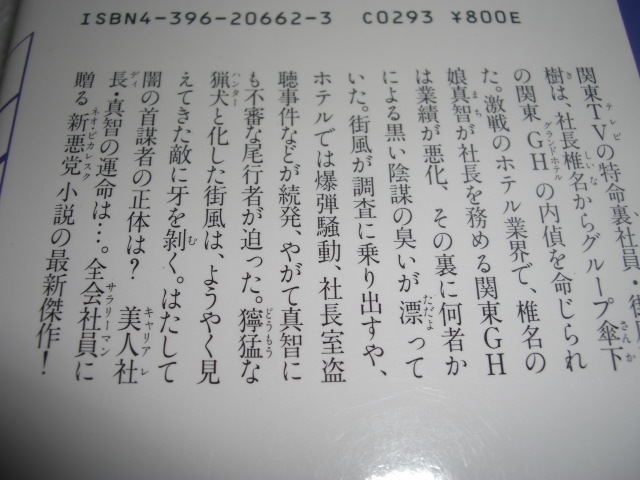 ISBN4-396-20662-3 C0293 ¥800E
関東TVの特命裏社員・街風
樹は、社長椎名からグループ傘下
の関東GHの内偵を命じられ
た。激戦のホテル業界で、椎名の
娘真智が社長を務める関東GH
は業績が悪化、その裏に何者か
による黒い陰謀の臭いが漂って
いた。街風が調査に乗り出すや、
ホテルでは爆弾騒動、社長室盗
聴事件などが続発、やがて真智に
も不審な尾行者が迫った。獰猛な
猟犬と化した街風は、ようやく見
えてきた敵に牙を剝く。はたして
闇の首謀者の正体は? 美人社
長・真智の運命は…。全会社員に
贈る新悪党小説の最新傑作!